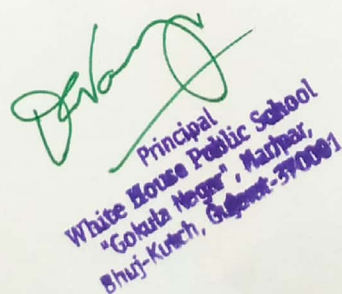 Principal
White House Public School
"Gokula Nagar", Marıpar,
Bhuj-Kutch, Gujarat-370001